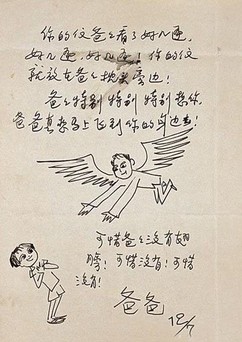 你的信爸爸看了好几遍,
好几遍,好几遍!你的信
就放在爸爸枕头旁边!
爸爸特别特别特别想你,
爸爸真想马上飞到你的身边去!
可惜爸爸没有翅
膀!可惜没有!可惜
没有!
爸爸